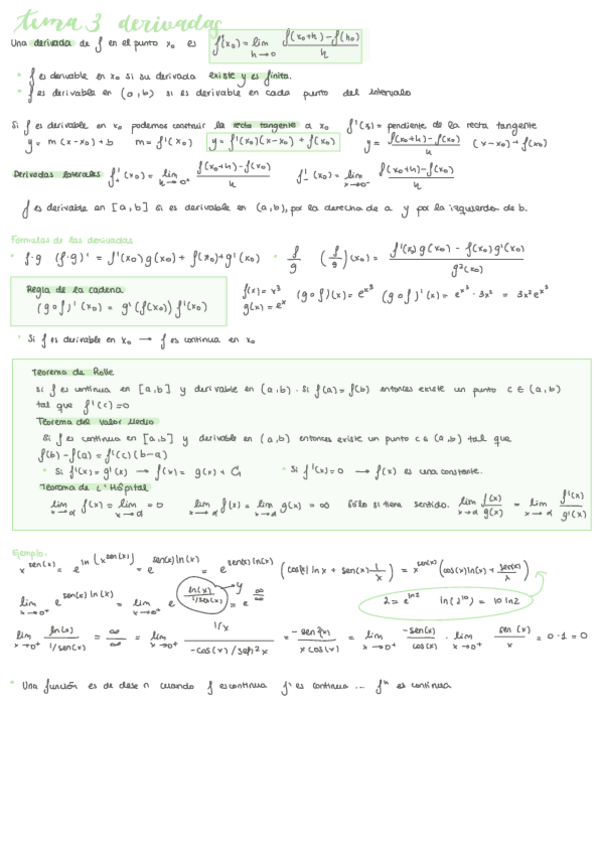 tema 3 derivadas
Una derivada de f en el punto x₀ es f'(x₀) = lim h→0 (f(x₀+h) - f(h₀))/h
• f es derivable en x₀ si su derivada existe y es finita.
• f es derivable en (a,b) si es derivable en cada punto del intervalo
Si f es derivable en x₀ podemos construir la recta tangente a x₀ f'(x₀) = pendiente de la recta tangente
y = m(x-x₀)+b m = f'(x₀) y = f'(x₀)(x-x₀) + f(x₀) y = (f(x₀+h) - f(x₀))/h (x-x₀) + f(x₀)
Derivadas laterales f'₊(x₀) = lim h→0⁺ (f(x₀+h) - f(x₀))/h f'₋(x₀) = lim x→0⁻ (f(x₀+h) - f(x₀))/h
f es derivable en [a,b] si es derivable en (a,b), por la derecha de a y por la izquierda de b.
Formulas de las derivadas
• f·g (f·g)' = f'(x₀)g(x₀) + f(x₀)+g'(x₀) • f/g (f/g)'(x₀) = (f'(x₀)g(x₀) - f(x₀)g'(x₀))/g²(x₀)
Regla de la cadena
(g∘f)'(x₀) = g'(f(x₀)) f'(x₀)
f(x) = x³ g(x) = eˣ (g∘f)(x) = e^x³ (g∘f)'(x) = e^x³ · 3x² = 3x²e^x³
• Si f es derivable en x₀ → f es continua en x₀
Teorema de Rolle
Si f es continua en [a,b] y derivable en (a,b). Si f(a) = f(b) entonces existe un punto c ∈ (a,b)
tal que f'(c) = 0
Teorema del valor Medio
Si f es continua en [a,b] y derivable en (a,b) entonces existe un punto c ∈ (a,b) tal que
f(b) - f(a) = f'(c)(b-a)
• Si f'(x) = g'(x) → f(x) = g(x) + C₁ • Si f'(x) = 0 → f(x) es una constante.
Teorema de L'Hôpital
lim x→α f(x) = lim x→α = 0 lim x→α f(x) = lim x→α g(x) = ∞ Sólo si tiene sentido. lim x→α f(x)/g(x) = lim x→α f'(x)/g'(x)
Ejemplo:
x^sen(x) = e^ln(x^sen(x)) = e^sen(x)ln(x) = e^sen(x)ln(x) (cos(x) ln x + sen(x) 1/x) = x^sen(x) (cos(x)ln(x) + sen(x)/x)
lim x→0⁺ e^sen(x)ln(x) = lim x→0⁺ e^(ln(x)/(1/sen(x))) → y = e^(∞/∞) 2 = e^ln2 ln(2¹⁰) = 10 ln2
lim x→0⁺ ln(x)/(1/sen(x)) = ∞/∞ = lim x→0⁺ (1/x)/(-cos(x)/sen²x) = -sen²(x)/(x cos(x)) = lim x→0⁺ -sen(x)/cos(x) · lim x→0⁺ sen(x)/x = 0·1 = 0
• Una función es de clase n cuando f es continua f' es continua ... fⁿ es continua